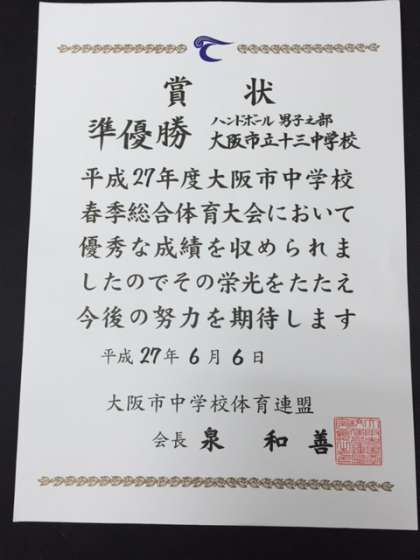 賞状
ハンドボール 男子之部
準優勝 大阪市立十三中学校
平成27年度大阪市中学校
春季総合体育大会において
優秀な成績を収められま
したのでその栄光をたたえ
今後の努力を期待します
平成27年6月6日
大阪市中学校体育連盟
会長 泉 和善